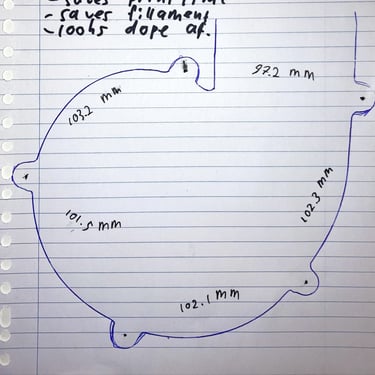 - saves print time
- saves fillament
- looks dope af.
97.2 mm
103.2 mm
102.3 mm
101.5 mm
102.1 mm